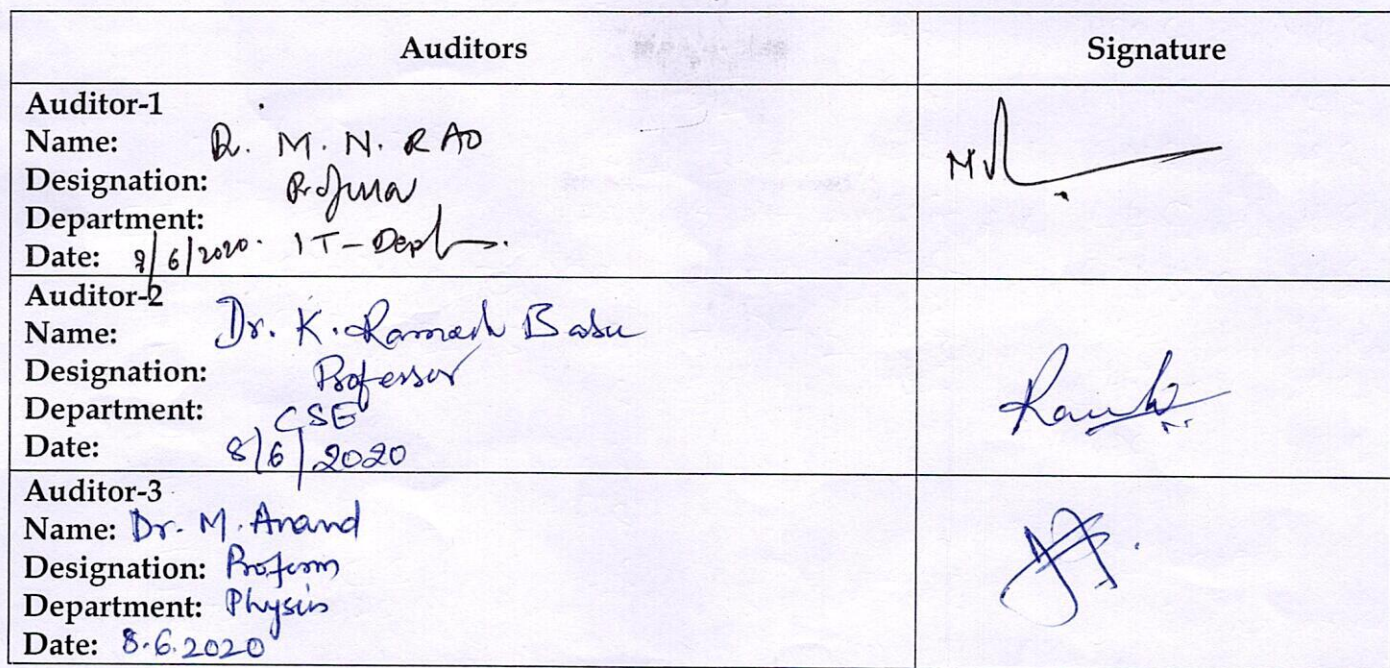 Auditors Signature
Auditor-1
Name: D. M. N. RAO
Designation: Professor
Department: IT-Dept.
Date: 8/6/2020.
Auditor-2
Name: Dr. K. Ramesh Babu
Designation: Professor
Department: CSE
Date: 8/6/2020
Auditor-3
Name: Dr. M. Anand
Designation: Professor
Department: Physics
Date: 8.6.2020